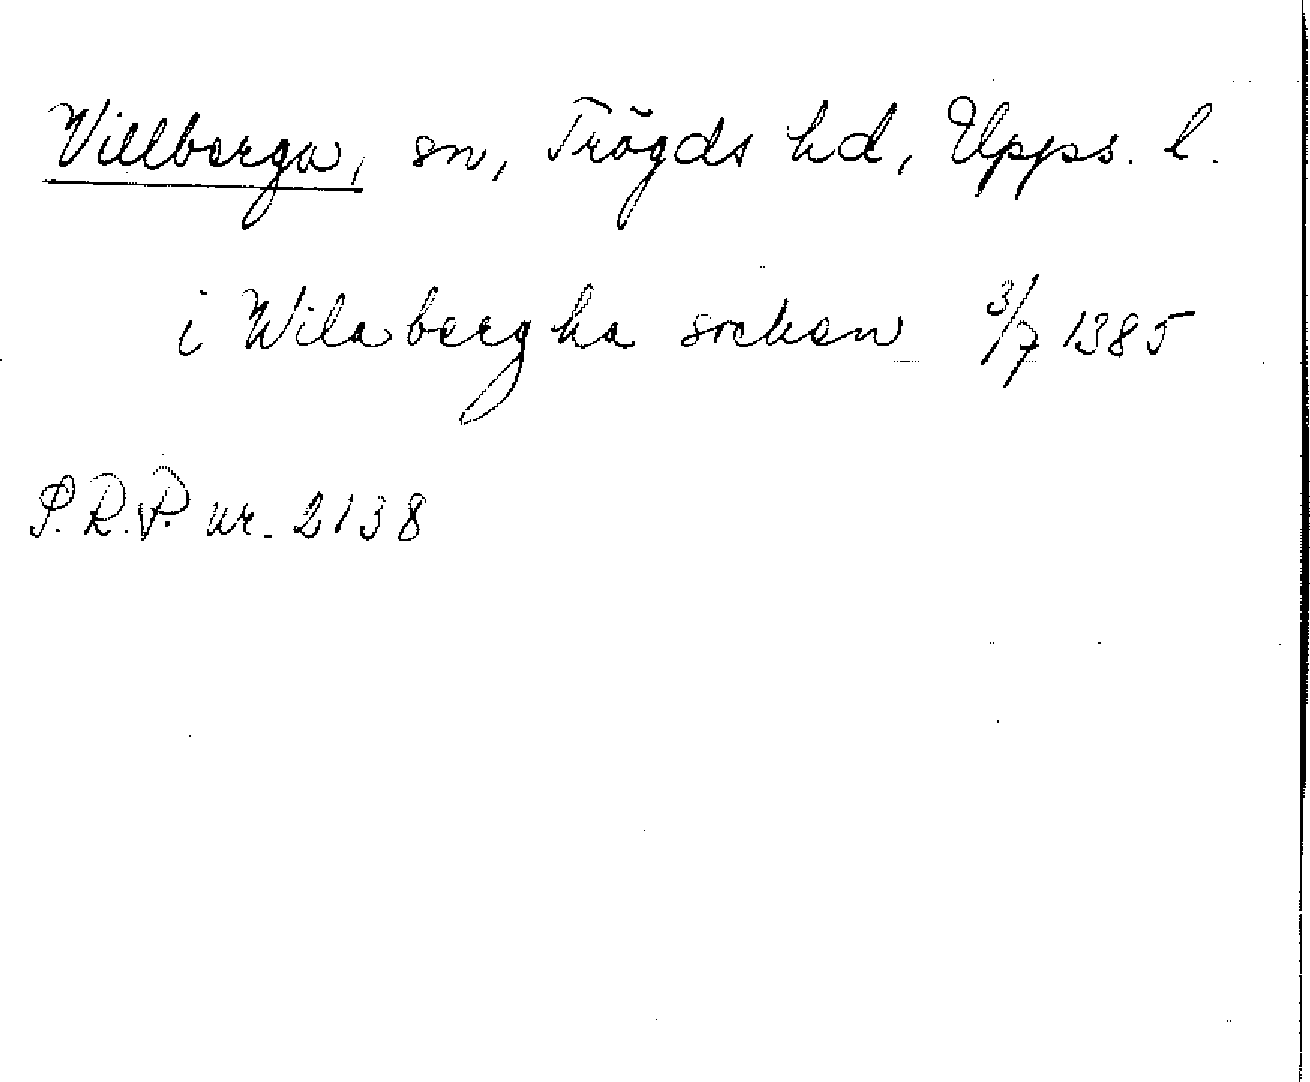 Villberga, sn, Trögds hd, Upps. l.
i Wilabergha socken 3/7 1385
S.R.P. nr. 2138